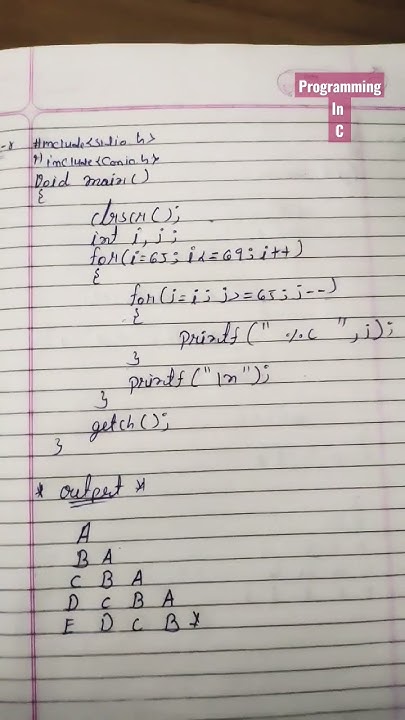 Programming
In
C
#include<stdio.h>
#include<conio.h>
void main()
{
clrscr();
int i, j;
for(i=65; i<=69; i++)
{
for(j=i; j>=65; j--)
{
printf(" %c ", j);
}
printf("\n");
}
getch();
}
* output *
A
B A
C B A
D C B A
E D C B *